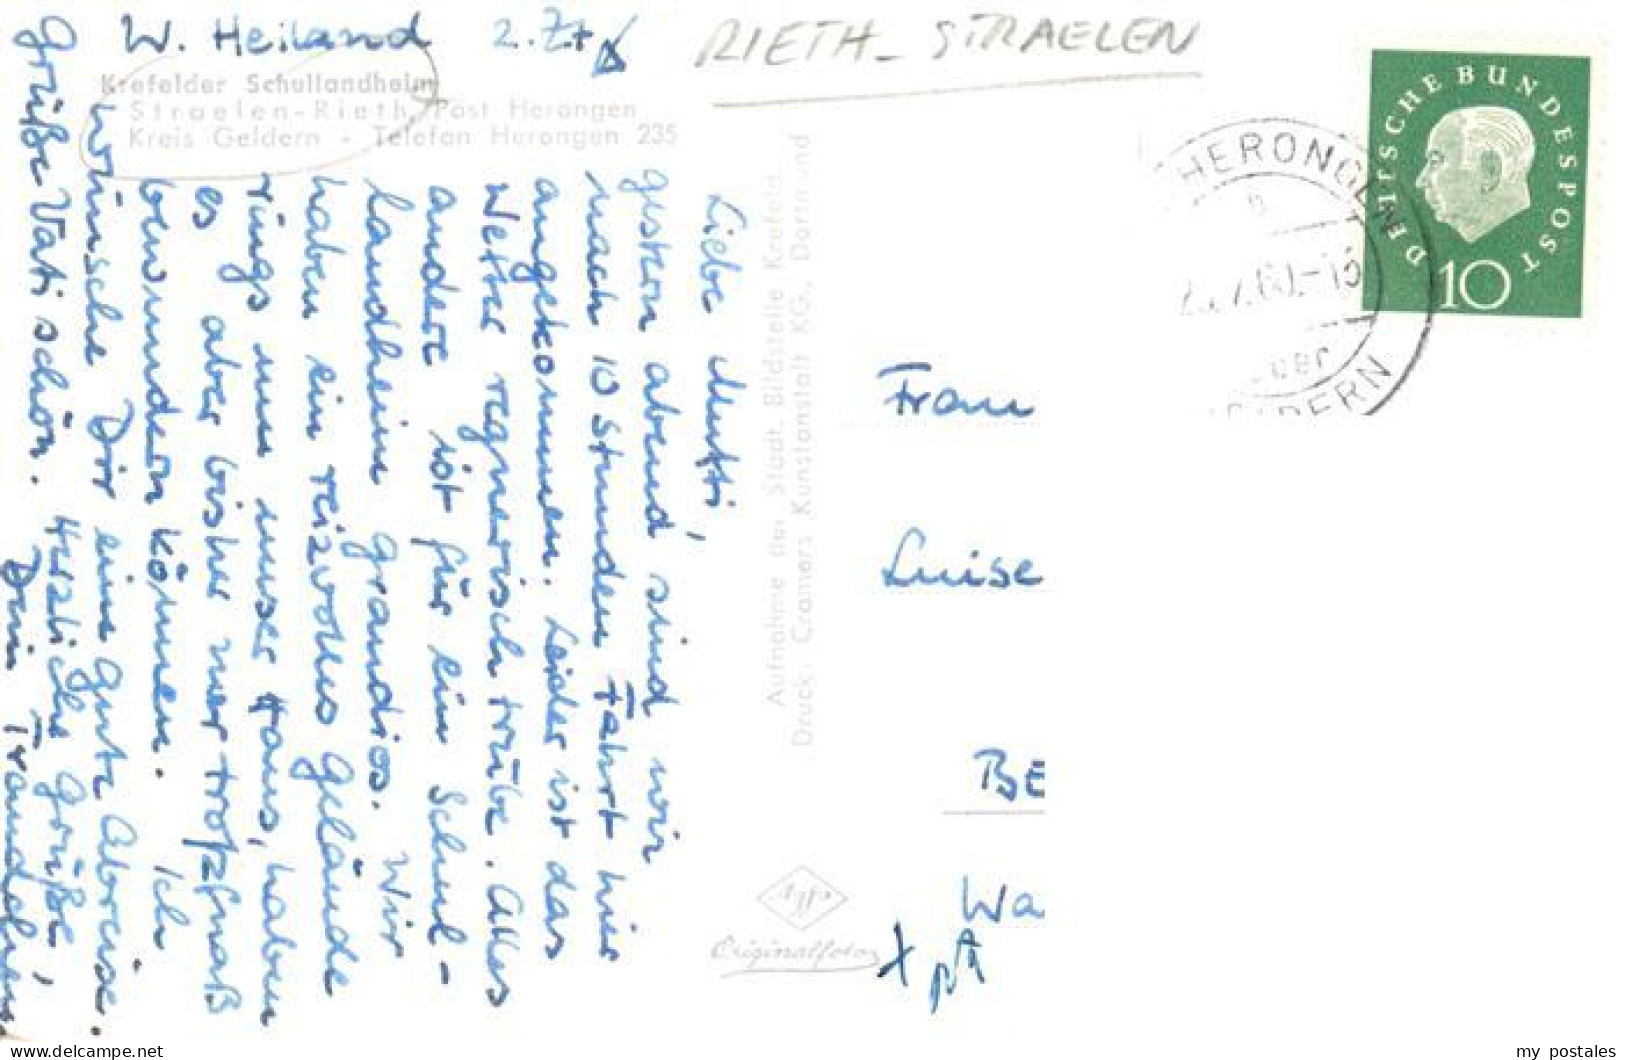 W. Heiland z. Zt.
Krefelder Schullandheim
Straelen-Rieth, Post Herongen
Kreis Geldern - Telefon Herongen 235
RIETH - STRAELEN
Liebe Mutti,
gestern abend sind wir
nach 10 stunden Fahrt hier
angekommen. Leider ist das
Wetter regnerisch trübe. Alles
andere ist für ein Schul-
landheim grandios. Wir
haben ein reizvolles Gelände
rings um unser Haus, haben
es aber bisher nur tropfnaß
bewundern können. Ich
wünsche Dir eine gute Abreise.
Grüße Vati schön. Herzliche Grüße,
Dein Traudchen
Aufnahme der Städt. Bildstelle Krefeld
Druck: Cramers Kunstanstalt KG., Dortmund
Agfa
Originalfoto
DEUTSCHE BUNDESPOST
10
HERONGEN
GELDERN
Frau
Luise
BE
Wa
my postales